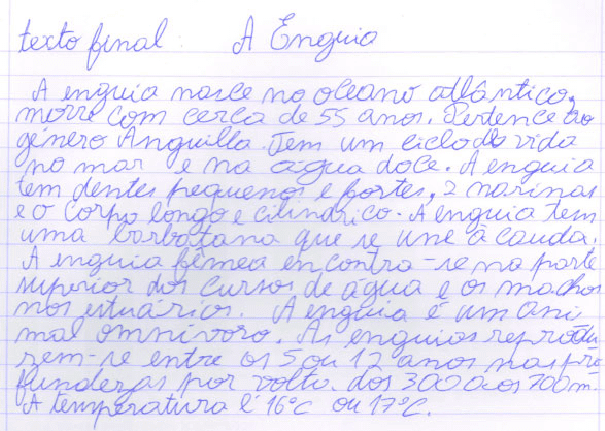 texto final: A Enguia
A enguia nasce no oceano atlântico,
morre com cerca de 55 anos. Pertence ao
género Anguilla. Tem um ciclo de vida
no mar e na água doce. A enguia
tem dentes pequenos e fortes, 2 narinas
e o corpo longo e cilíndrico. A enguia tem
uma barbatana que se une à cauda.
A enguia fêmea encontra-se na parte
superior dos cursos de água e os machos
nos estuários. A enguia é um ani
mal omnívoro. As enguias reprodu
zem-se entre os 5 ou 12 anos nas pro
fundezas por volta dos 300 aos 700m.
A temperatura é 16°C ou 17°C.